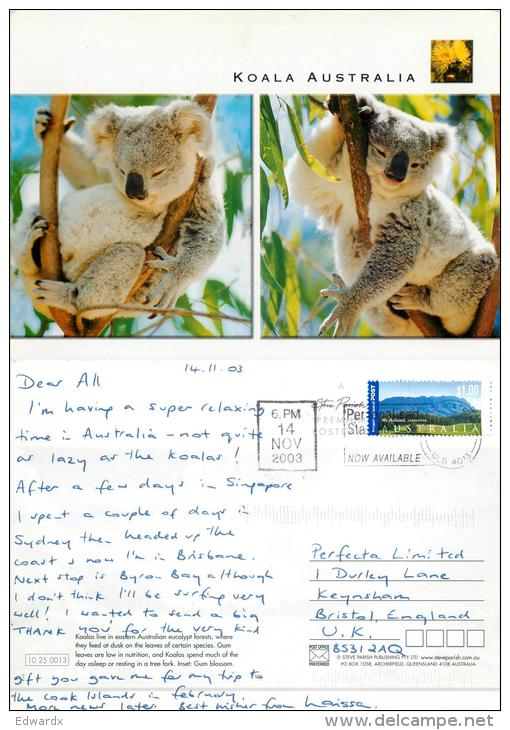 KOALA AUSTRALIA
14.11.03
Dear All
I'm having a super relaxing
time in Australia - not quite
as lazy as the koalas!
After a few days in Singapore
I spent a couple of days in
Sydney then headed up the
coast & now I'm in Brisbane.
Next stop is Byron Bay although
I don't think I'll be surfing very
well! I wanted to send a big
'THANK YOU' for the very kind
Koalas live in eastern Australian eucalypt forests, where
they feed at dusk on the leaves of certain species. Gum
leaves are low in nutrition, and Koalas spend much of the
day asleep or resting in a tree fork. Inset: Gum blossom.
10 25 0013
gift you gave me for my trip to
the Cook Islands in february.
More news later. Best wishes from Larissa.
A
Steve Parish
POSTCARD
6.PM
14
NOV
2003
Per
Sta
NOW AVAILABLE
QLD 4013
$1.00
Mt Roland, TASMANIA
AUSTRALIA
POST
Perfecta Limited
1 Durley Lane
Keynsham
Bristol, England
U.K.
BS31 2AQ
POST OFFICE
PREFERRED
© STEVE PARISH PUBLISHING PTY LTD www.steveparish.com.au
PO BOX 1058, ARCHERFIELD, QUEENSLAND 4108 AUSTRALIA
Edwardx
delcampe.net